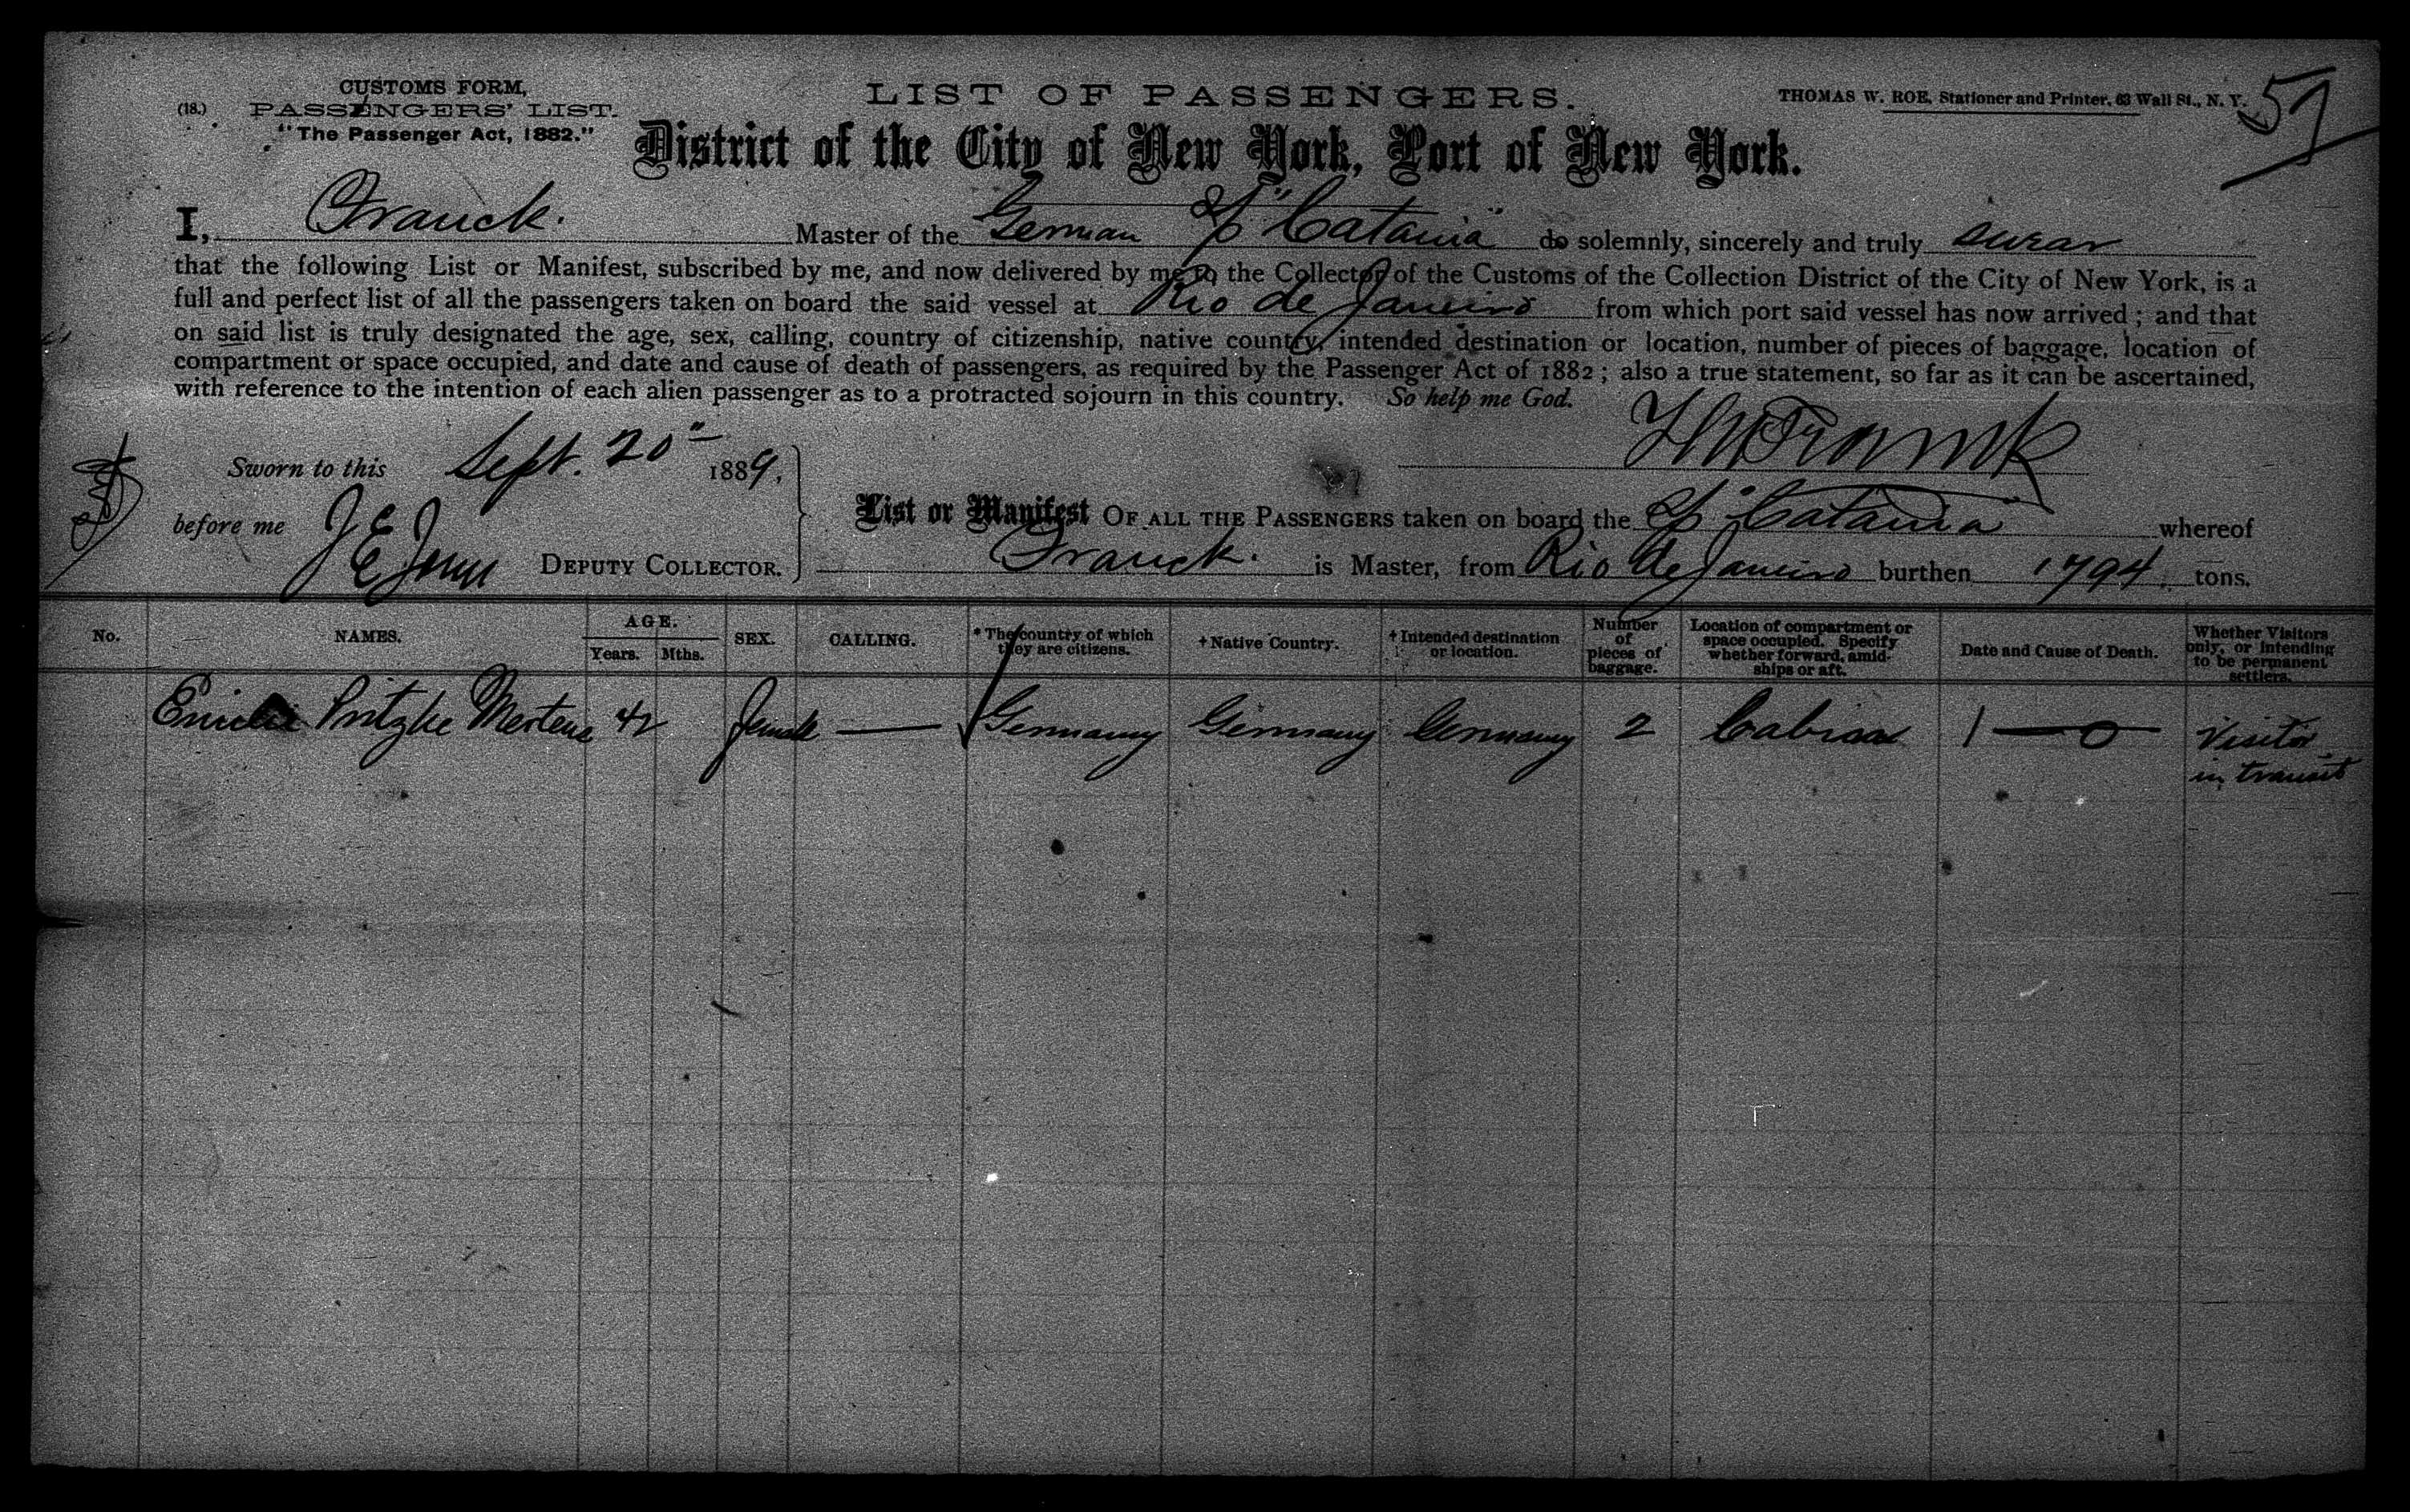 CUSTOMS FORM,
(18.) PASSENGERS' LIST.
"The Passenger Act, 1882."
LIST OF PASSENGERS.
THOMAS W. ROE, Stationer and Printer, 63 Wall St., N. Y.
57
District of the City of New York, Port of New York.
I, Franck. Master of the German S/S "Catania" do solemnly, sincerely and truly swear
that the following List or Manifest, subscribed by me, and now delivered by me to the Collector of the Customs of the Collection District of the City of New York, is a
full and perfect list of all the passengers taken on board the said vessel at Rio de Janeiro from which port said vessel has now arrived; and that
on said list is truly designated the age, sex, calling, country of citizenship, native country, intended destination or location, number of pieces of baggage, location of
compartment or space occupied, and date and cause of death of passengers, as required by the Passenger Act of 1882; also a true statement, so far as it can be ascertained,
with reference to the intention of each alien passenger as to a protracted sojourn in this country. So help me God.
Sworn to this Sept. 20" 1889,
before me DEPUTY COLLECTOR.
Franck
List or Manifest OF ALL THE PASSENGERS taken on board the S/S "Catania" whereof
Franck. is Master, from Rio de Janeiro burthen 1794 tons.
No. NAMES. AGE. Years. Mths. SEX. CALLING. * The country of which they are citizens. † Native Country. † Intended destination or location. Number of pieces of baggage. Location of compartment or space occupied. Specify whether forward, amidships or aft. Date and Cause of Death. Whether Visitors only, or intending to be permanent settlers.
Pritzke Mertens 42 Female — Germany Germany Germany 2 Cabin Visitor
in transit